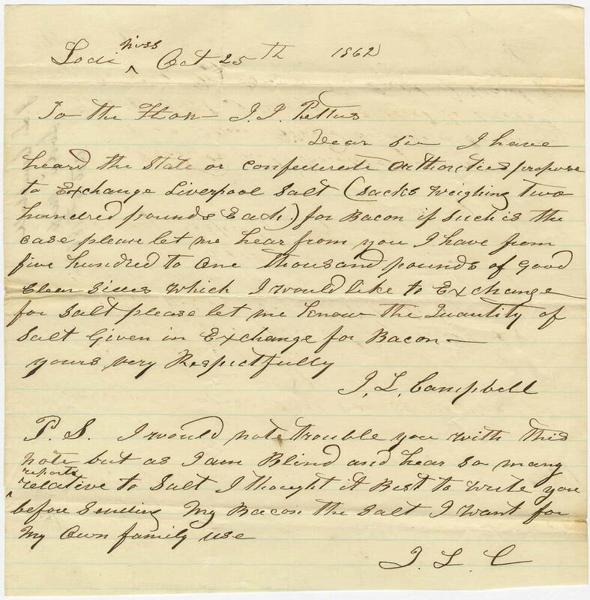 Lodi Miss Oct 25th 1862
To the Hon J. J. Pettus
Dear Sir I have
heard the State or confederate authorities propose
to Exchange Liverpool Salt (Sacks weighing two
hundred pounds Each.) for Bacon if Such is the
case please let me hear from you I have from
five hundred to one thousand pounds of Good
Clear Sides which I would like to Exchange
for Salt please let me know the Quantity of
Salt Given in Exchange for Bacon—
yours very Respectfully
J. L. Campbell
P. S. I would not trouble you with this
note but as I am Blind and hear so many
reports
relative to Salt I thought it Best to write you
before Sending My Bacon the Salt I want for
My Own family use
J. L. C